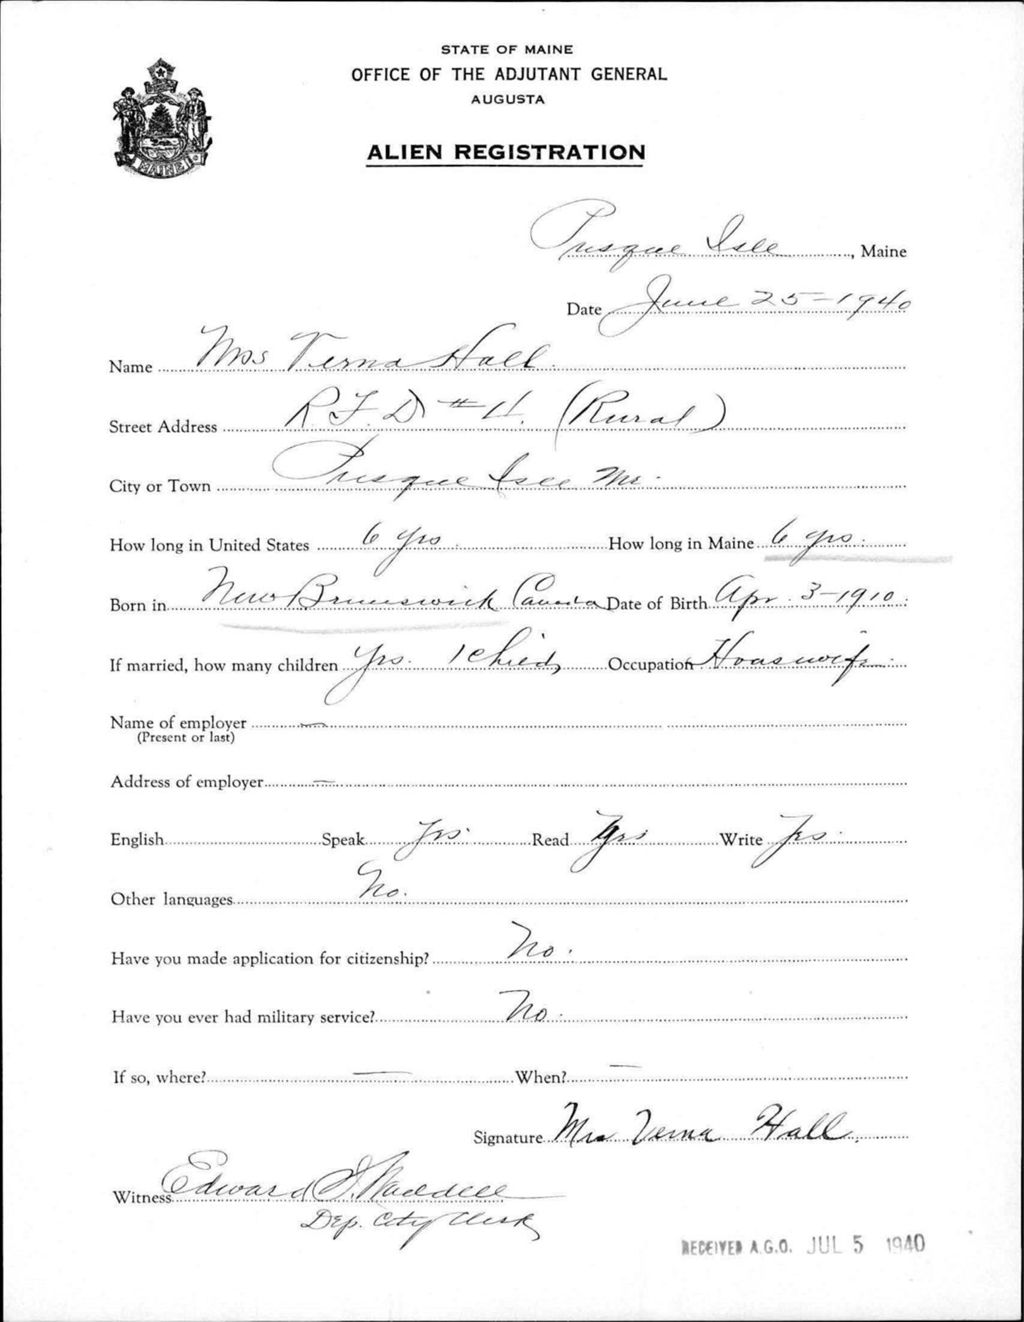 STATE OF MAINE
OFFICE OF THE ADJUTANT GENERAL
AUGUSTA
MAINE
ALIEN REGISTRATION
Presque Isle, Maine
Date June 25-1940
Name Mrs Verna Hall.
Street Address R.F.D #4. (Rural)
City or Town Presque Isle Me.
How long in United States 6 yrs. How long in Maine 6 yrs.
Born in New Brunswick Canada Date of Birth Apr. 3-1910.
If married, how many children Yes. 1 Child, Occupation Housewife.
Name of employer —
(Present or last)
Address of employer —
English Speak Yes. Read Yes Write Yes.
Other languages No.
Have you made application for citizenship? No.
Have you ever had military service? No.
If so, where? — When? —
Signature Mrs Verna Hall.
Witness Edward I. Waddell
Dep. City Clerk
RECEIVED A.G.O. JUL 5 1940